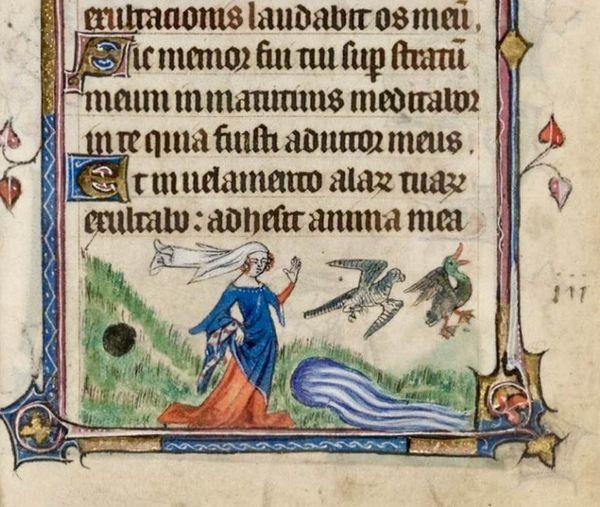 exultationis laudabit os meū.
Sic memor fui tui sup stratū
meum in matutinis meditabor
in te quia fuisti adiutor meus.
Et in uelamento alaꝝ tuaꝝ
exultabo : adhesit anima mea